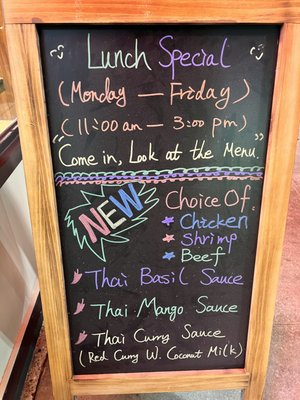 Lunch Special
(Monday — Friday)
(11:00 am — 3:00 pm)
"Come in, Look at the Menu."
NEW
Choice Of:
Chicken
Shrimp
Beef
Thai Basil Sauce
Thai Mango Sauce
Thai Curry Sauce
(Red Curry W. Coconut Milk)